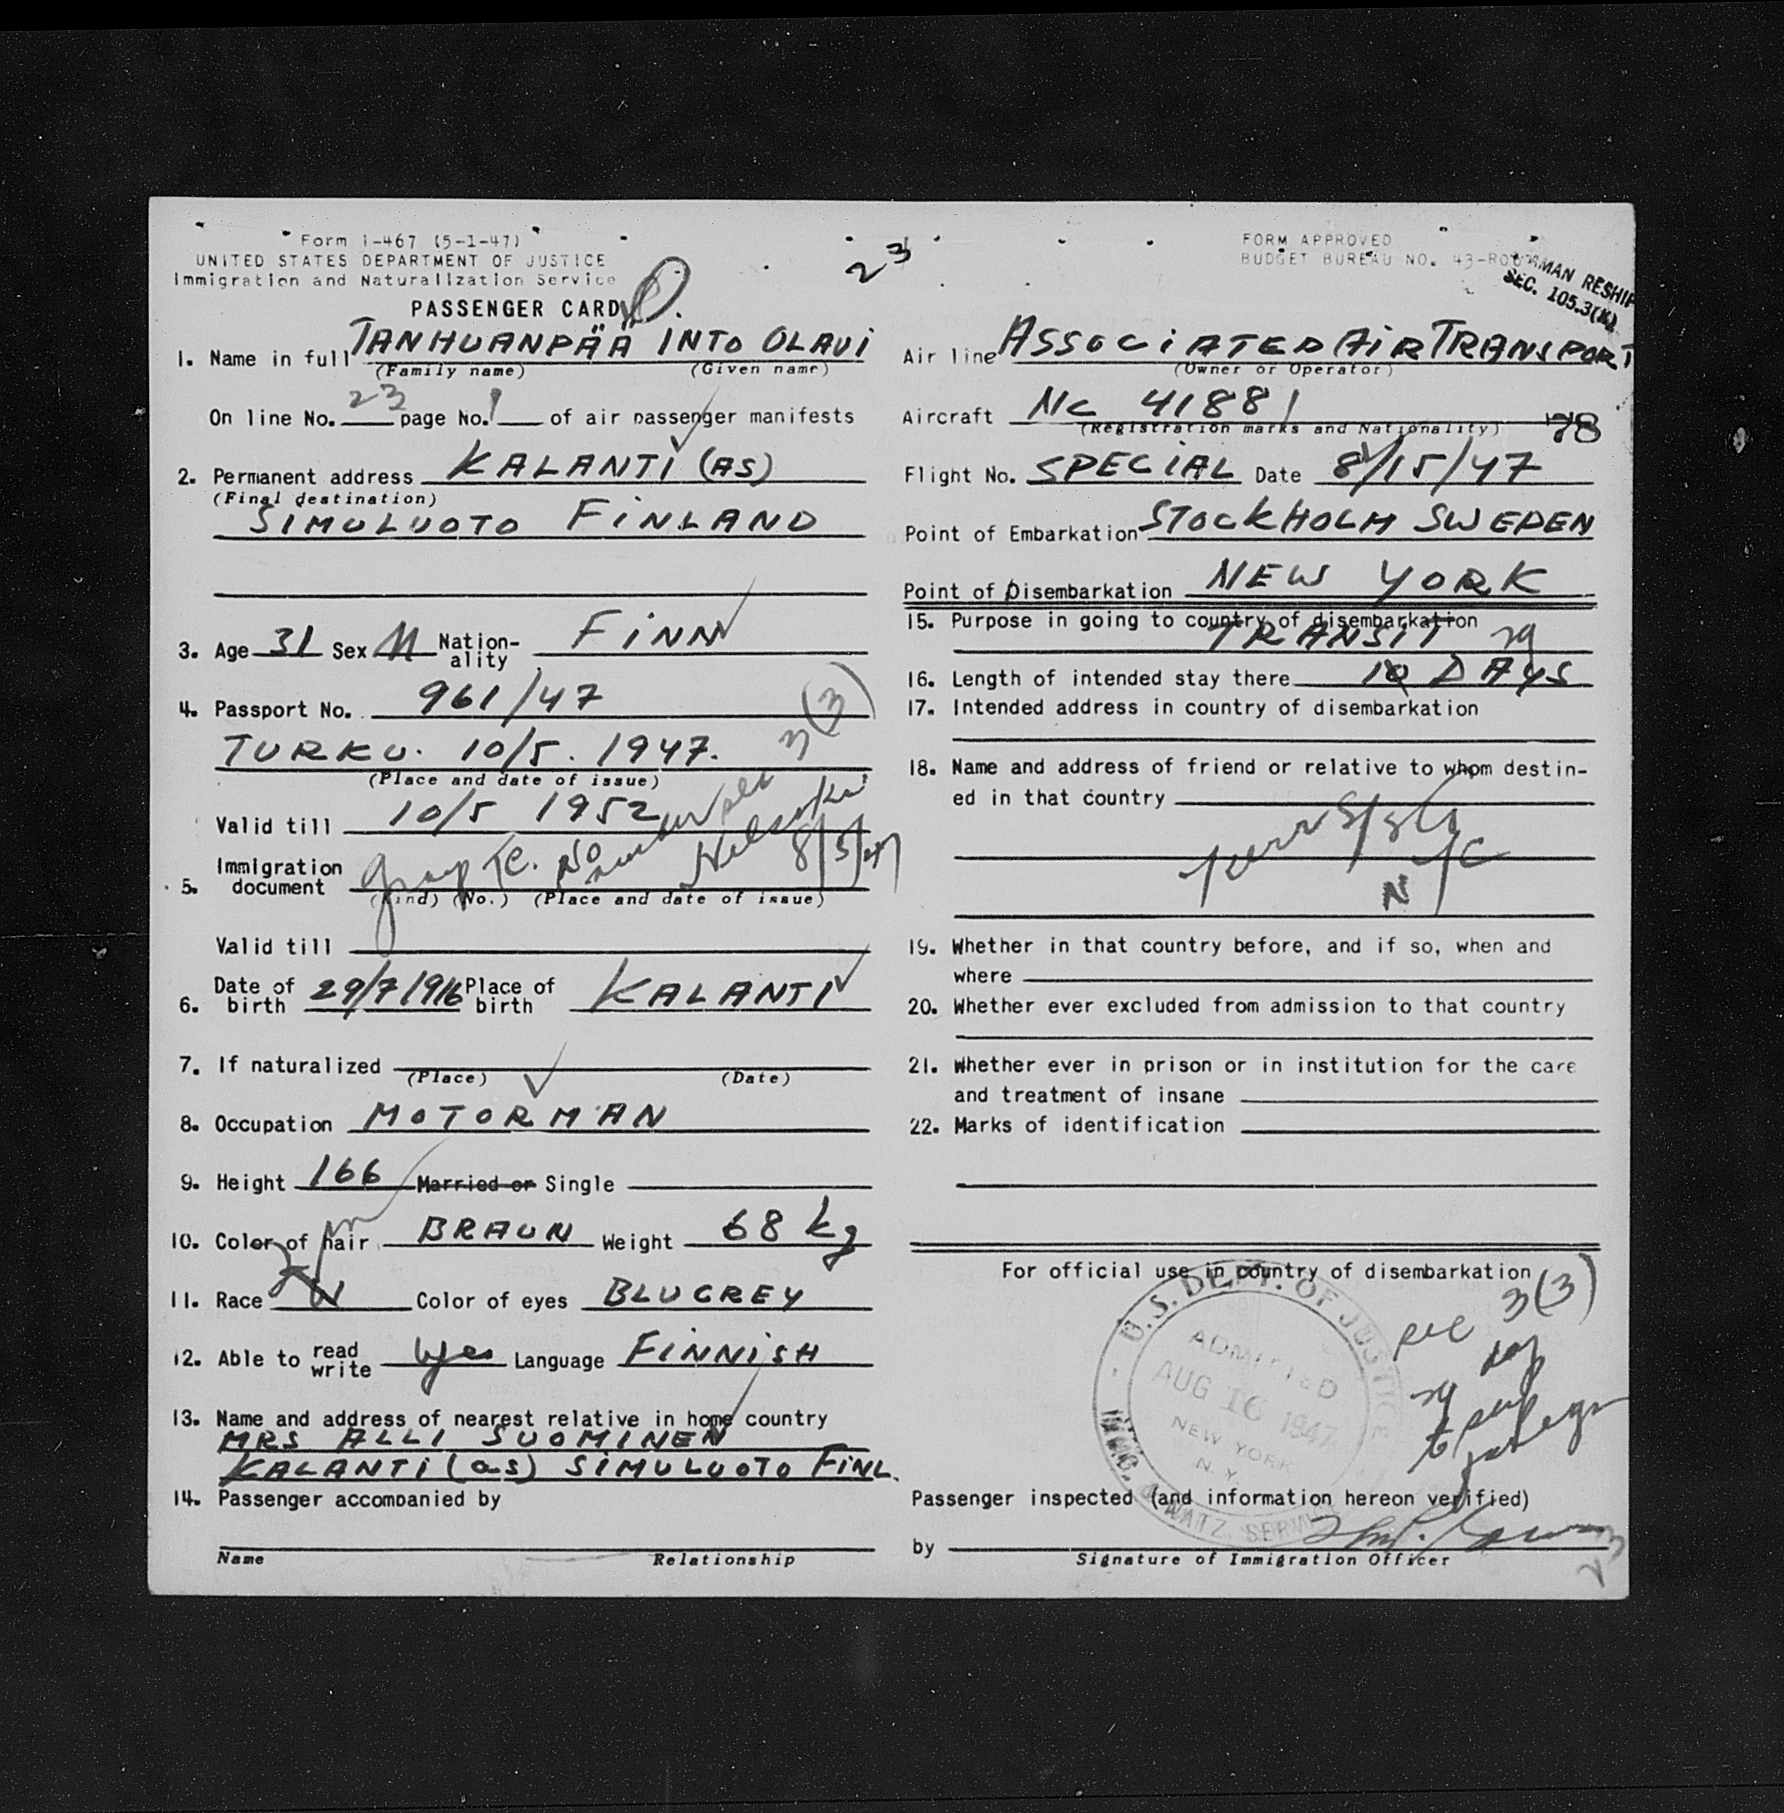 Form I-467 (5-1-47)
UNITED STATES DEPARTMENT OF JUSTICE
Immigration and Naturalization Service
PASSENGER CARD
23
FORM APPROVED
BUDGET BUREAU NO. 43-RO
RESHIP
SEC. 105.3(K)
1. Name in full TANHUANPÄÄ INTO OLAVI
(Family name) (Given name)
On line No. 23 page No. 1 of air passenger manifests
2. Permanent address KALANTI (AS)
(Final destination)
SIMULUOTO FINLAND
3. Age 31 Sex M Nation-ality FINN
4. Passport No. 961/47
3(3)
TURKU. 10/5. 1947.
(Place and date of issue)
Valid till 10/5 1952
5. Immigration document Group TC. No number Helsinki 8/5/47
(Kind) (No.) (Place and date of issue)
Valid till
6. Date of birth 29/7 1916 Place of birth KALANTI
7. If naturalized
(Place) (Date)
8. Occupation MOTORMAN
9. Height 166 Married or Single
10. Color of hair BRAUN Weight 68 kg
11. Race W Color of eyes BLUGREY
12. Able to read write yes Language FINNISH
13. Name and address of nearest relative in home country
MRS ALLI SUOMINEN
KALANTI (as) SIMULUOTO FINL.
14. Passenger accompanied by
Name Relationship
Air line ASSOCIATED AIR TRANSPORT
(Owner or Operator)
Aircraft NC 41881
(Registration marks and Nationality)
78
Flight No. SPECIAL Date 8/15/47
Point of Embarkation STOCKHOLM SWEDEN
Point of Disembarkation NEW YORK
15. Purpose in going to country of disembarkation
TRANSIT 29
16. Length of intended stay there 10 DAYS
17. Intended address in country of disembarkation
18. Name and address of friend or relative to whom destin-
ed in that country
NYC
19. Whether in that country before, and if so, when and
where
20. Whether ever excluded from admission to that country
21. Whether ever in prison or in institution for the care
and treatment of insane
22. Marks of identification
For official use in country of disembarkation
U.S. DEPT. OF JUSTICE
ADMITTED
AUG 16 1947
NEW YORK
N.Y.
IMMIG. & NATZ. SERVICE
3(3)
29
Passenger inspected (and information hereon verified)
by
Signature of Immigration Officer
23